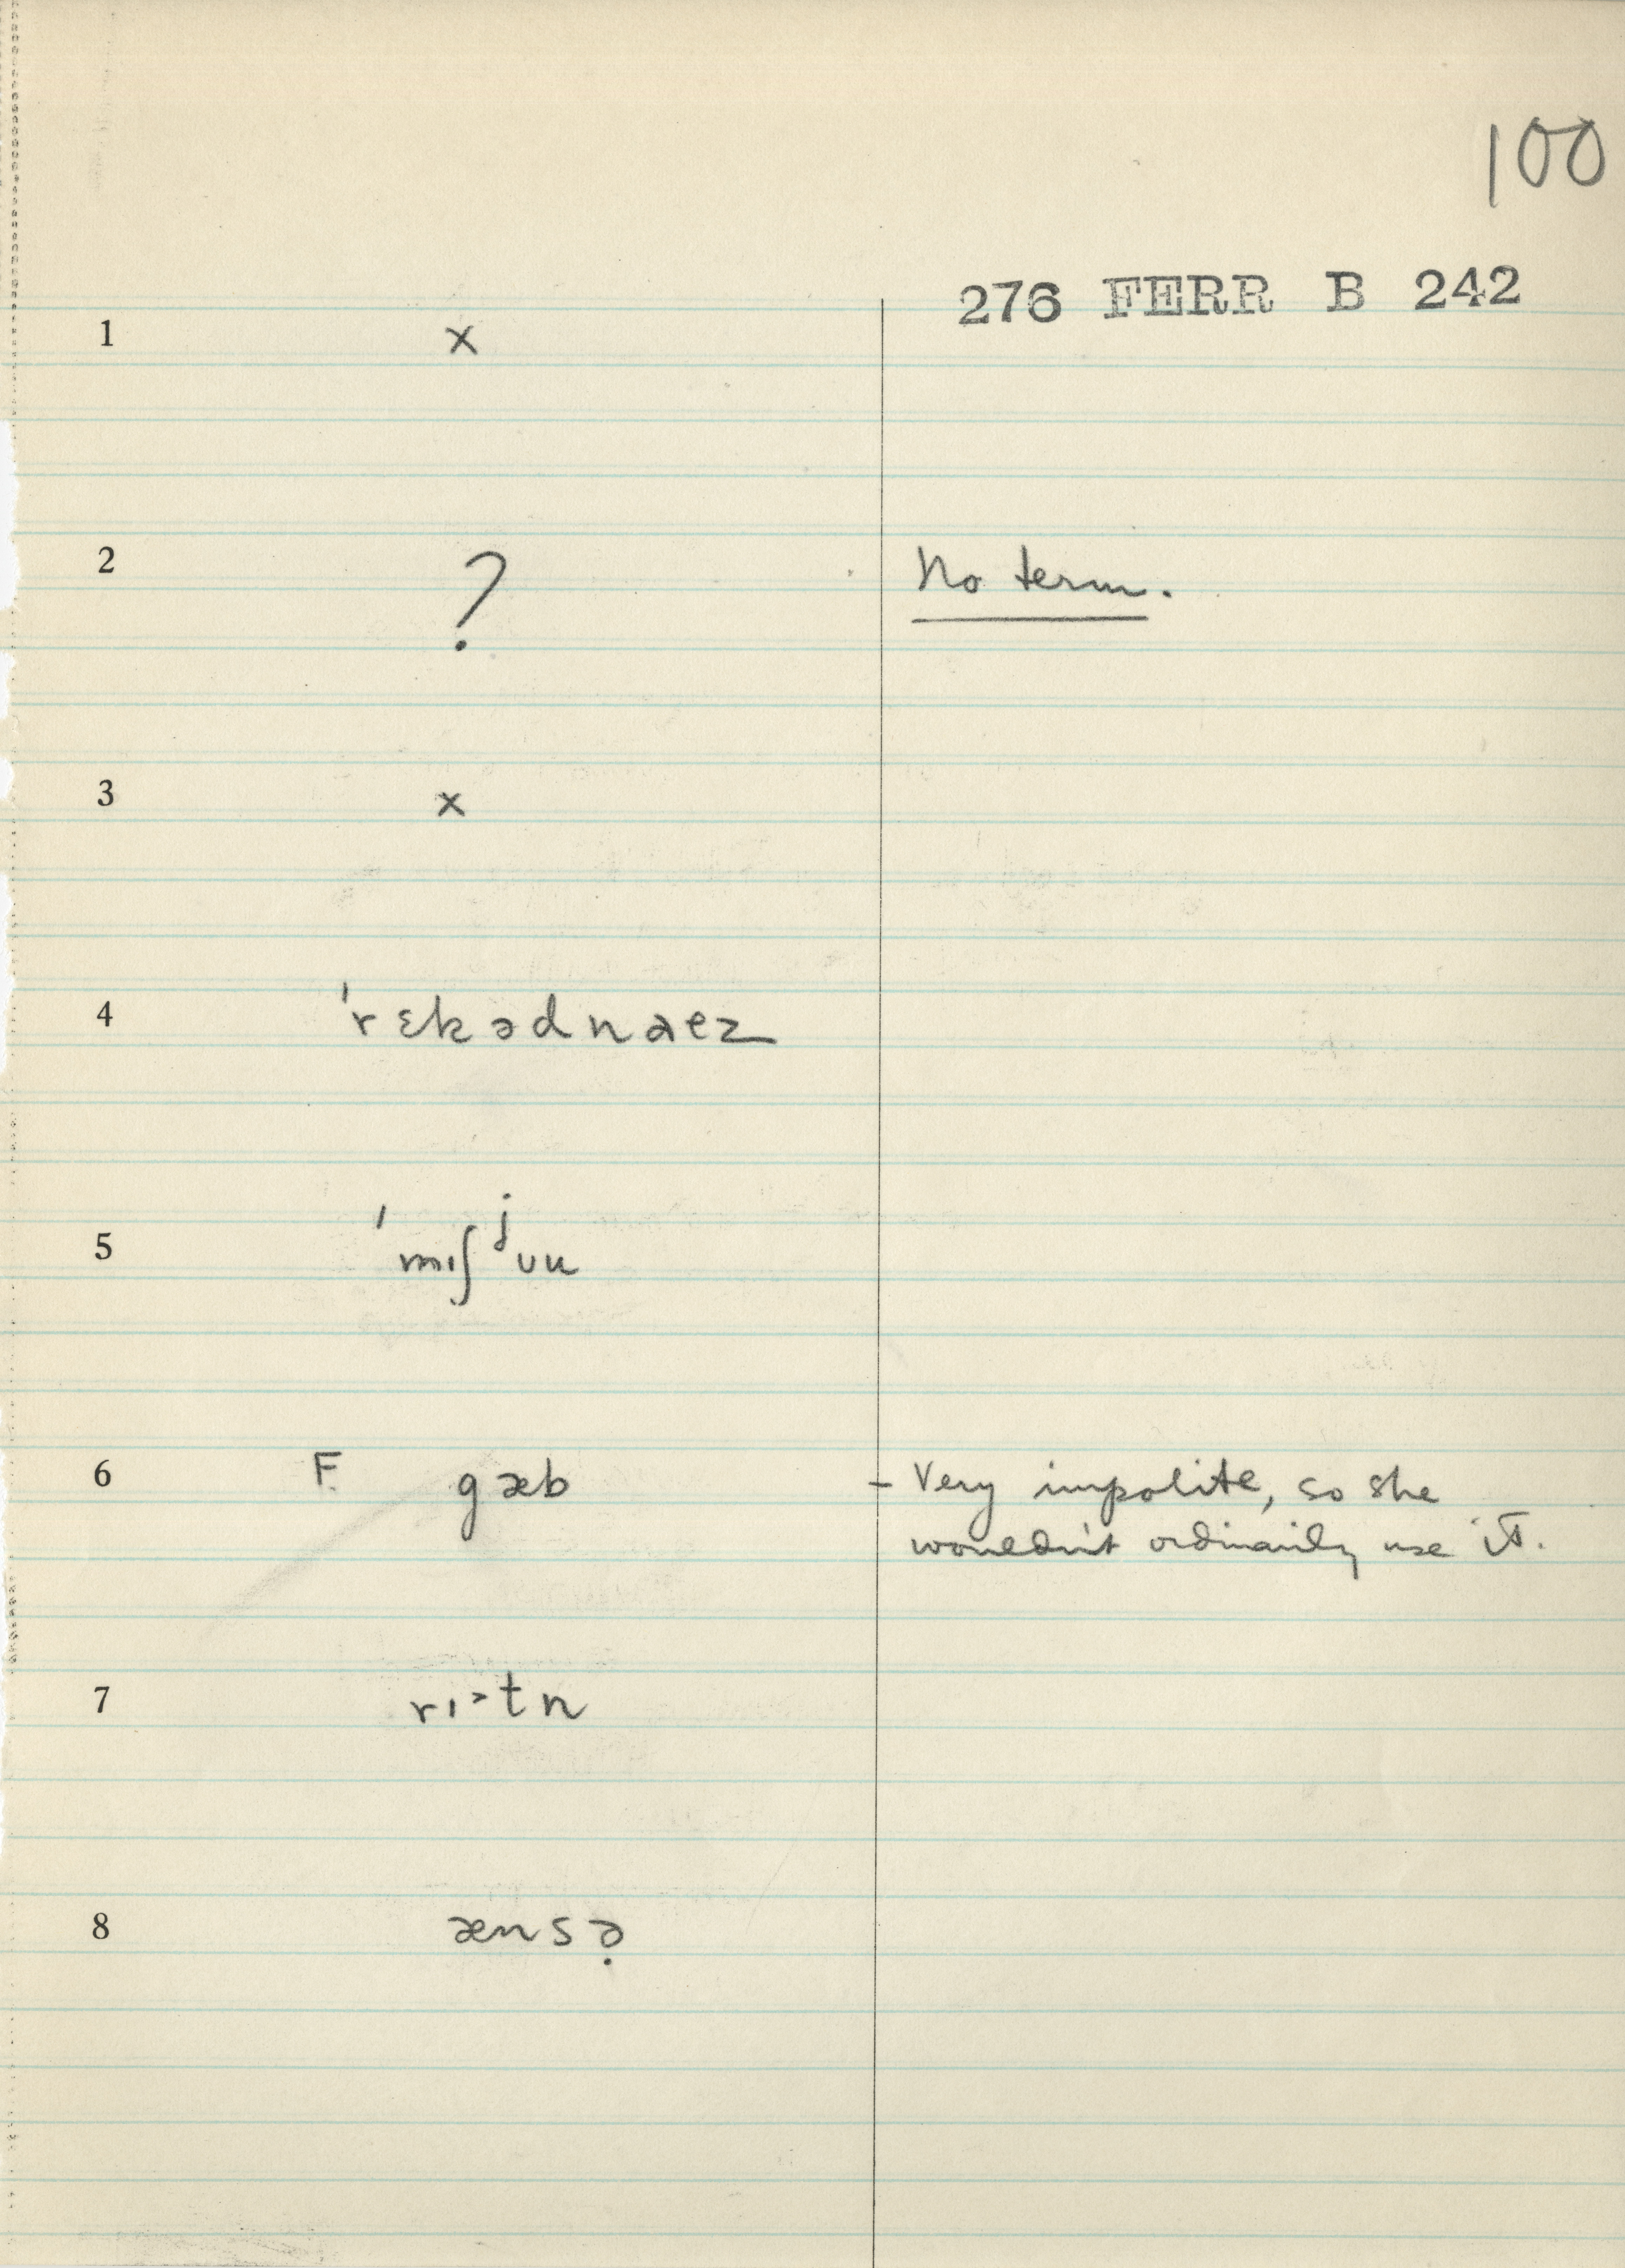 100
276 FERR B 242
1 x
2 ? No term.
3 x
4 ˈrɛkədnaez
5 ˈmɪʃʲuu
6 F. gæb - Very impolite, so she
wouldn't ordinarily use it.
7 rɪ˃tn
8 ænsə̣